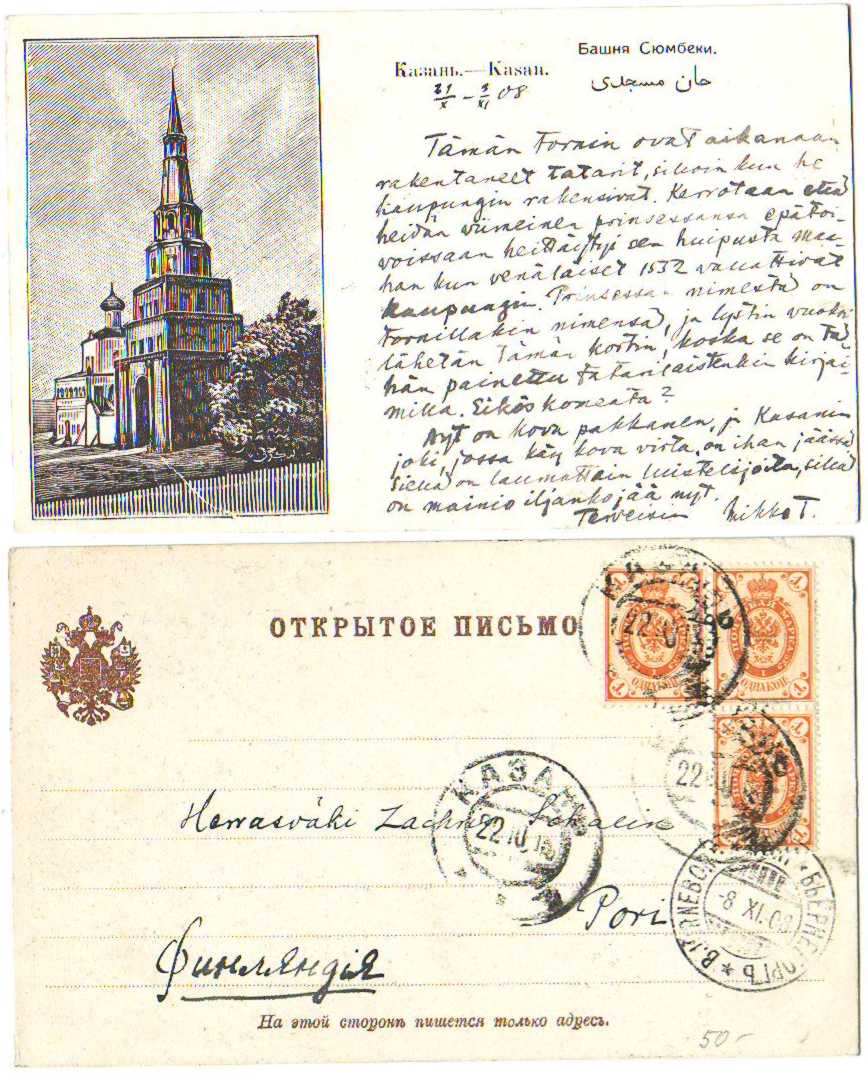 Башня Сюмбеки.
Казань.—Kasan.
خان مسجدی
21/X – 3/XI 08
Tämän Tornin ovat aikanaan
rakentaneet tatarit, silloin kun he
kaupungin rakensivat. Kerrotaan että
heidän viimeinen prinsessansa epätoi-
voissaan heittäytyi sen huipusta maa-
han kun venäläiset 1532 valloittivat
kaupungin. Prinsessan nimestä on
tornillakin nimensä, ja
lähetän tämän kortin, koska se on tä-
hän painettu tatarilaistenkin kirjai-
milla. Eikös komeata?
Nyt on kova pakkanen, ja Kasanin
joki, jossa käy kova virta, on ihan jäässä
Siellä on laumattain luistelijoita, sillä
on mainio iljankojää nyt.
Terveisin Mikko T.
ОТКРЫТОЕ ПИСЬМО
ПОЧТОВАЯ МАРКА
ОДНА КОП.
1
КАЗАНЬ
22 10
Herrasväki
Pori
Финляндія
БЬЕРНЕБОРГЪ
-8 XI.08
На этой сторонѣ пишется только адресъ.
50-